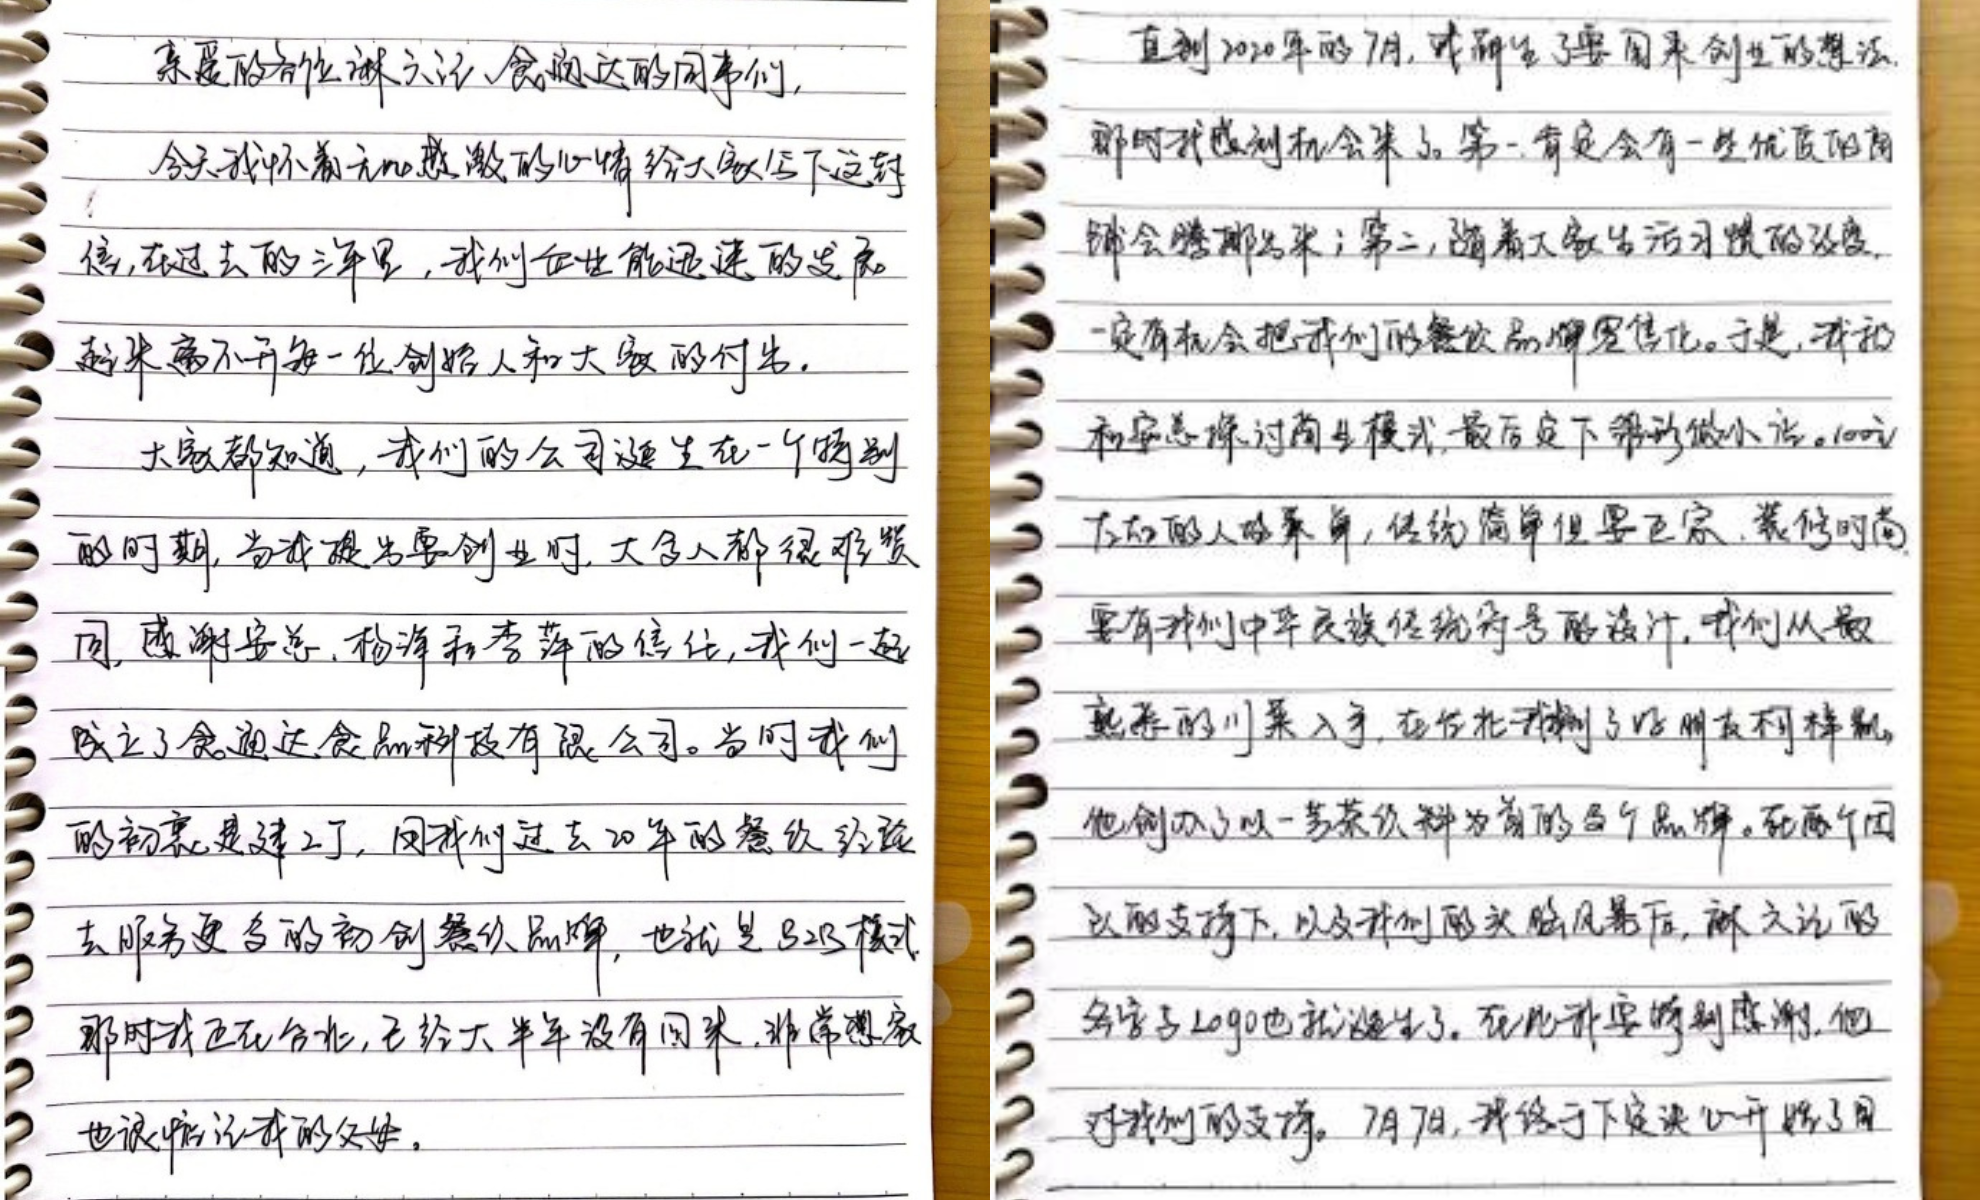 亲爱的各位谢六记、食通达的同事们,
今天我怀着无比感激的心情给大家写下这封
信,在过去的三年里,我们企业能迅速的发展
起来离不开每一位创始人和大家的付出。
大家都知道,我们的公司诞生在一个特别
的时期,当我提出要创业时,大多人都很难赞
同,感谢安总、杨洋和李萍的信任,我们一起
成立了食通达食品科技有限公司。当时我们
的初衷是建工厂,用我们过去20年的餐饮经验
去服务更多的初创餐饮品牌,也就是B2B模式.
那时我还在台北,已经大半年没有回来,非常想家
也很惦记我的父母。
直到2020年的7月,我萌生了要回来创业的想法.
那时我感到机会来了。第一,肯定会有一些优质的商
铺会腾挪出来;第二,随着大家生活习惯的改变,
一定有机会把我们的餐饮品牌零售化。于是,我和
和安总探讨商业模式,最后定下锅形做小店。100元
左右的人均菜单,传统简单但要正宗、装修时尚
要有我们中华民族传统符号的设计,我们从最
熟悉的川菜入手,在台北我到了好朋友柯梓凯,
他创办了以一芳茶饮料为首的多个品牌。在两个团
队的支持下,以及我们的头脑风暴后,谢六记的
名字与Logo也就诞生了。在此我要特别感谢,他
对我们的支持。7月7日,我终于下定决心开始了回